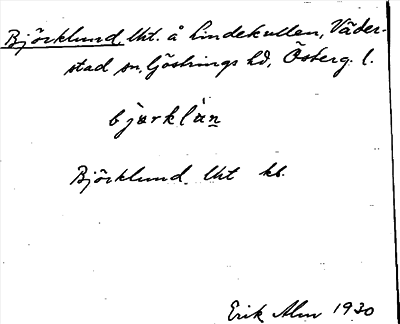 Björklund, lht. å Lindekullen, Väder-
stad sn, Göstrings hd, Österg. l.
bjørklu̇n
Björklund lht kb.
Erik Alm 1930